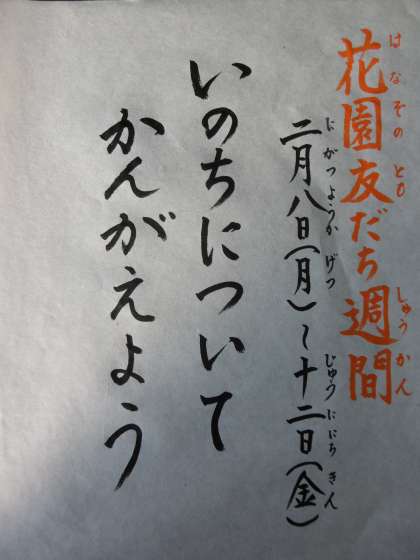 花園友だち週間
はなぞのとも
しゅうかん
二月八日(月)~十二日(金)
にがつようか げつ
じゅうににち きん
いのちについて
かんがえよう